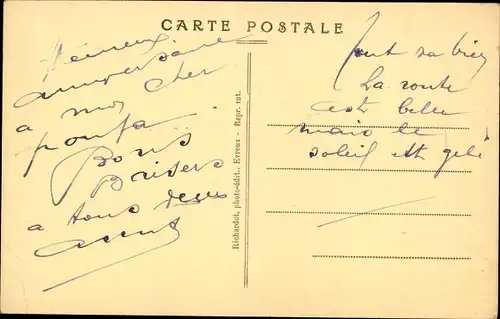 CARTE POSTALE
Heureux
anniversaire
a mon cher
Bons
Baisers
a tous deux
Tout va bien
La route
est belle
mais le
soleil est gelé
Richardot, photo-édit., Evreux - Repr. int.